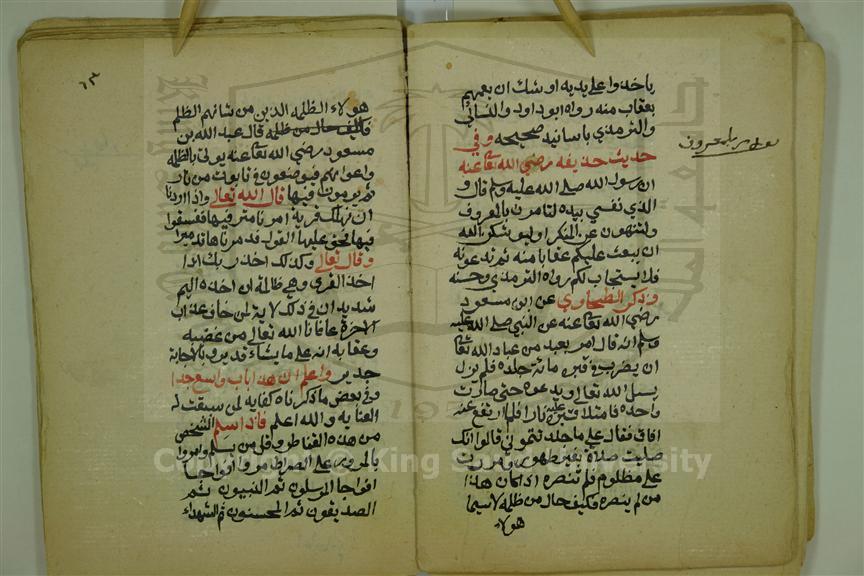 ياخذوا على يديه او شك ان يعمهم
بعقاب منه رواه ابو داود والنسائى
والترمذى باسانيد صحيحه وفي
حديث حذيفه رضى الله تعا عنه
ان رسول الله صلى الله عليه وسلم قال و
الذي نفسي بيده لتامرن بالمعروف
ولتنهون عن المنكر او ليوشكن الله
ان يبعث عليكم عقابا منه ثم تدعونه
فلا يستجاب لكم رواه الترمذي وحسنه
وذكر الطحاوي عن ابن مسعود
رضى الله تعا عنه عن النبي صلى الله عليه
وسلم انه قال امر بعبد من عباد الله تعا
ان يضرب في قبره مائة جلده فلم يزل
يسل الله تعا ويدعوه حتى صارت
واحده فامتلا قبره عليه نارا فلم ارتفع عنه
افاق فقال على ما جلد تمونى قالوا انك
صليت صلاة بغير طهور ومررت
على مظلوم فلم تنصره اذا كان هذا
من لم ينصره فكيف حال من ظلمه لاسيما
هولاء
بالمعروف
٦٣
هولاء الظلمه الذين من شانهم الظلم
فكيف حال من ظلمه قال عبد الله بن
مسعود رضى الله تعا عنه يوتى بالظلمه
واعوانهم فيوضعون في تابوت من نار
ثم يرمون فيها قال الله تعالى واذا اردنا
ان نهلك قرية امرنا مترفيها ففسقوا
فيها فحق عليها القول فدمرناها تدميرا
وقال تعالى وكذلك اخذ ربك اذا
اخذ القرى وهي ظالمة ان اخذه اليم
شديد ان في ذلك لاية لمن خاف عذاب
الاخرة عافانا الله تعالى من غضبه
وعقابه انه على ما يشاء قدير وبالاجابة
جدير واعلم ان هذا باب واسع جدا
وفي بعض ما ذكرناه كفايه لمن سبقت له
العنايه والله اعلم فاذا سلم الشخص
من هذه القناطر وقل من يسلم وامروا
بالمرور على الصراط مروا افواجا
افواجا المرسلون ثم النبيون ثم
الصديقون ثم المحسنون ثم الشهداء
Copyright © King Saud University